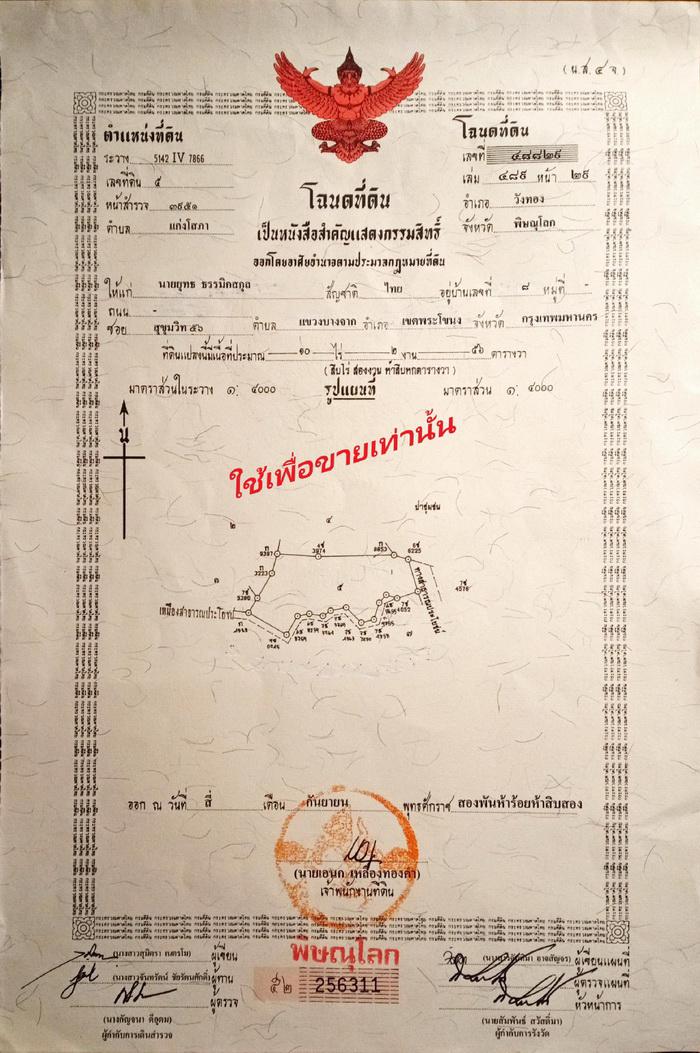 (น.ส. ๔ จ.)
ตำแหน่งที่ดิน
ระวาง 5142 IV 7866
เลขที่ดิน ๕
หน้าสำรวจ ๓๙๕๑
ตำบล แก่งโสภา
โฉนดที่ดิน
เลขที่ ๔๘๘๒๙
เล่ม ๔๘๙ หน้า ๒๙
อำเภอ วังทอง
จังหวัด พิษณุโลก
โฉนดที่ดิน
เป็นหนังสือสำคัญแสดงกรรมสิทธิ์
ออกโดยอาศัยอำนาจตามประมวลกฎหมายที่ดิน
ให้แก่ นายยุทธ ธรรมิคสกุล สัญชาติ ไทย อยู่บ้านเลขที่ ๘ หมู่ที่ -
ถนน -
ซอย สุขุมวิท ๕๖ ตำบล แขวงบางจาก อำเภอ เขตพระโขนง จังหวัด กรุงเทพมหานคร
ที่ดินแปลงนี้มีเนื้อที่ประมาณ ๑๐ ไร่ ๒ งาน ๕๖ ตารางวา
(สิบไร่ สองงาน ห้าสิบหกตารางวา)
มาตราส่วนในระวาง ๑: ๔๐๐๐ รูปแผนที่ มาตราส่วน ๑: ๔๐๐๐
น
ใช้เพื่อขายเท่านั้น
ป่าชุมชน
๒ ๔
3974
6225
3223
๓ ๕
4576
เหมืองสาธารณประโยชน์
ทางสาธารณประโยชน์
4652
๗
ออก ณ วันที่ สี่ เดือน กันยายน พุทธศักราช สองพันห้าร้อยห้าสิบสอง
(นายเอนก เหลืองทองคำ)
เจ้าพนักงานที่ดิน
พิษณุโลก
๕๒ 256311
ผู้เขียน
(นางสาวจันทรัตน์ ชัยรัตนศักดิ์) ผู้ทาน
ผู้ตรวจ
(นางกัญจนา ดีอุดม)
ผู้กำกับการเดินสำรวจ
ผู้เขียนแผนที่
ผู้ตรวจแผนที่
หัวหน้าการ
(นายสัมพันธ์ สวัสดิ์มา)
ผู้กำกับการรังวัด